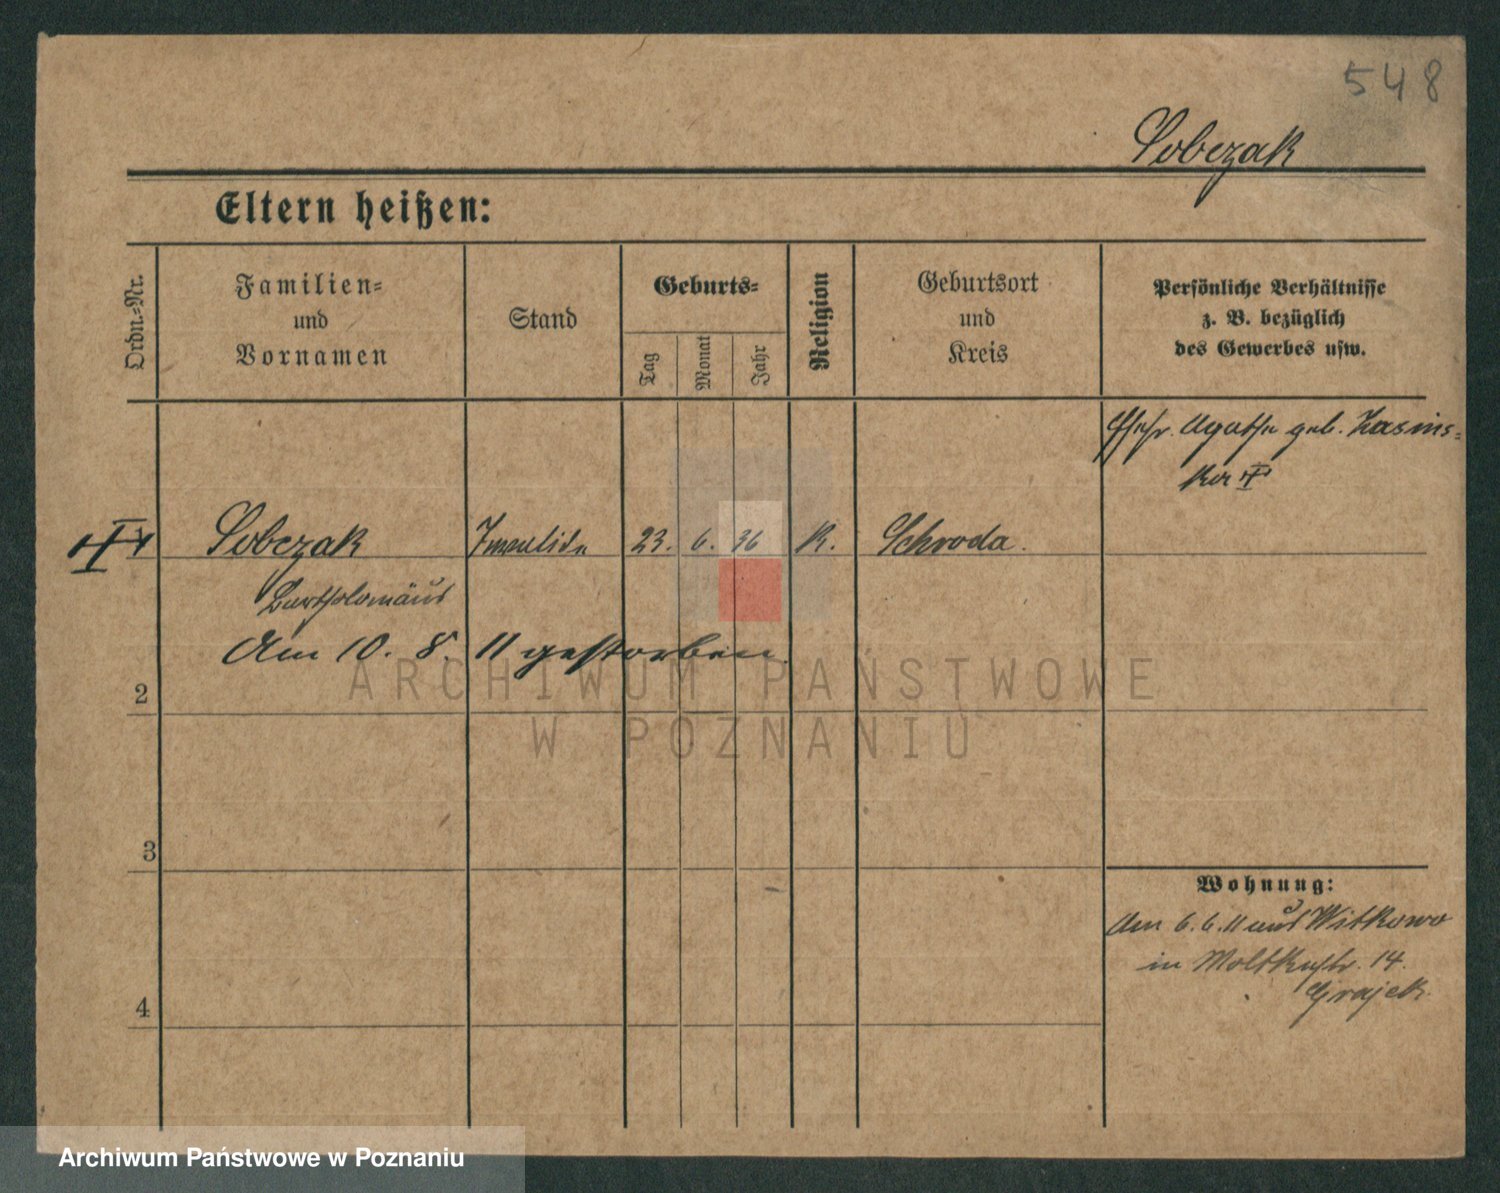 548
Sobczak
Eltern heißen:
Ordn.-Nr.
Familien-
und
Vornamen
Stand
Geburts-
Tag
Monat
Jahr
Religion
Geburtsort
und
Kreis
Persönliche Verhältnisse
z. B. bezüglich
des Gewerbes usw.
Ehefr. Agathe geb. Kasins-
ka
Sobczak Invalide 23. 6. 36 K. Schroda.
Bartholomäus
Am 10. 8. 11 gestorben.
2
3
4
Wohnung:
Am 6.6.11 aus Witkowo
in Moltkestr. 14.
Grajek.
ARCHIWUM PAŃSTWOWE
W POZNANIU
Archiwum Państwowe w Poznaniu